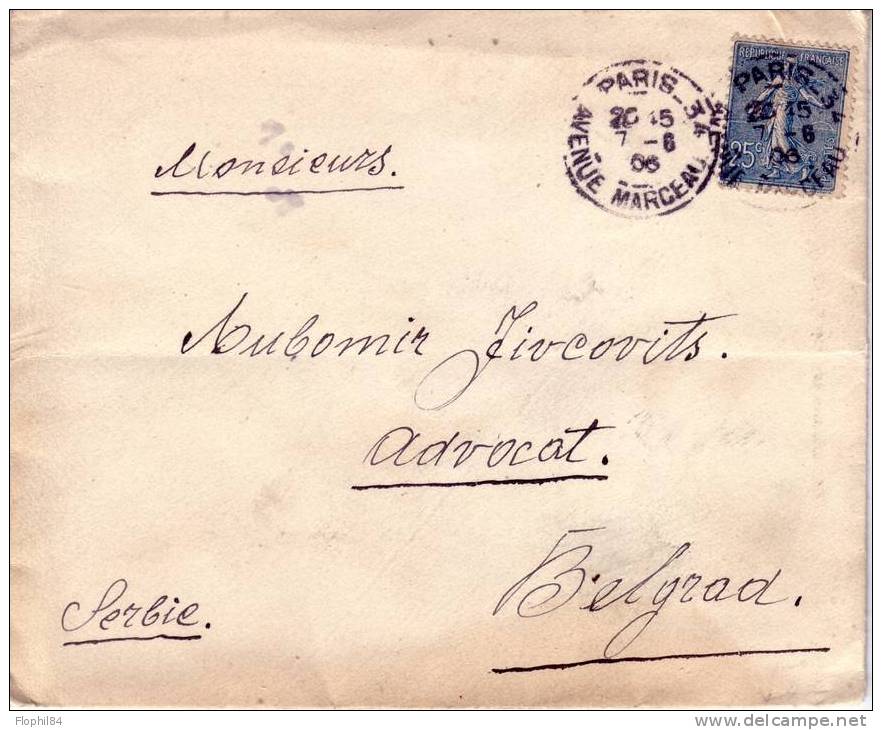 PARIS_34
20 45
7 - 6
06
AVENUE MARCEAU
REPUBLIQUE FRANÇAISE
25c
Monsieurs.
Aubomir Jivcovits.
Advocat.
Belgrad.
Serbie.
Flophil84
www.delcampe.net